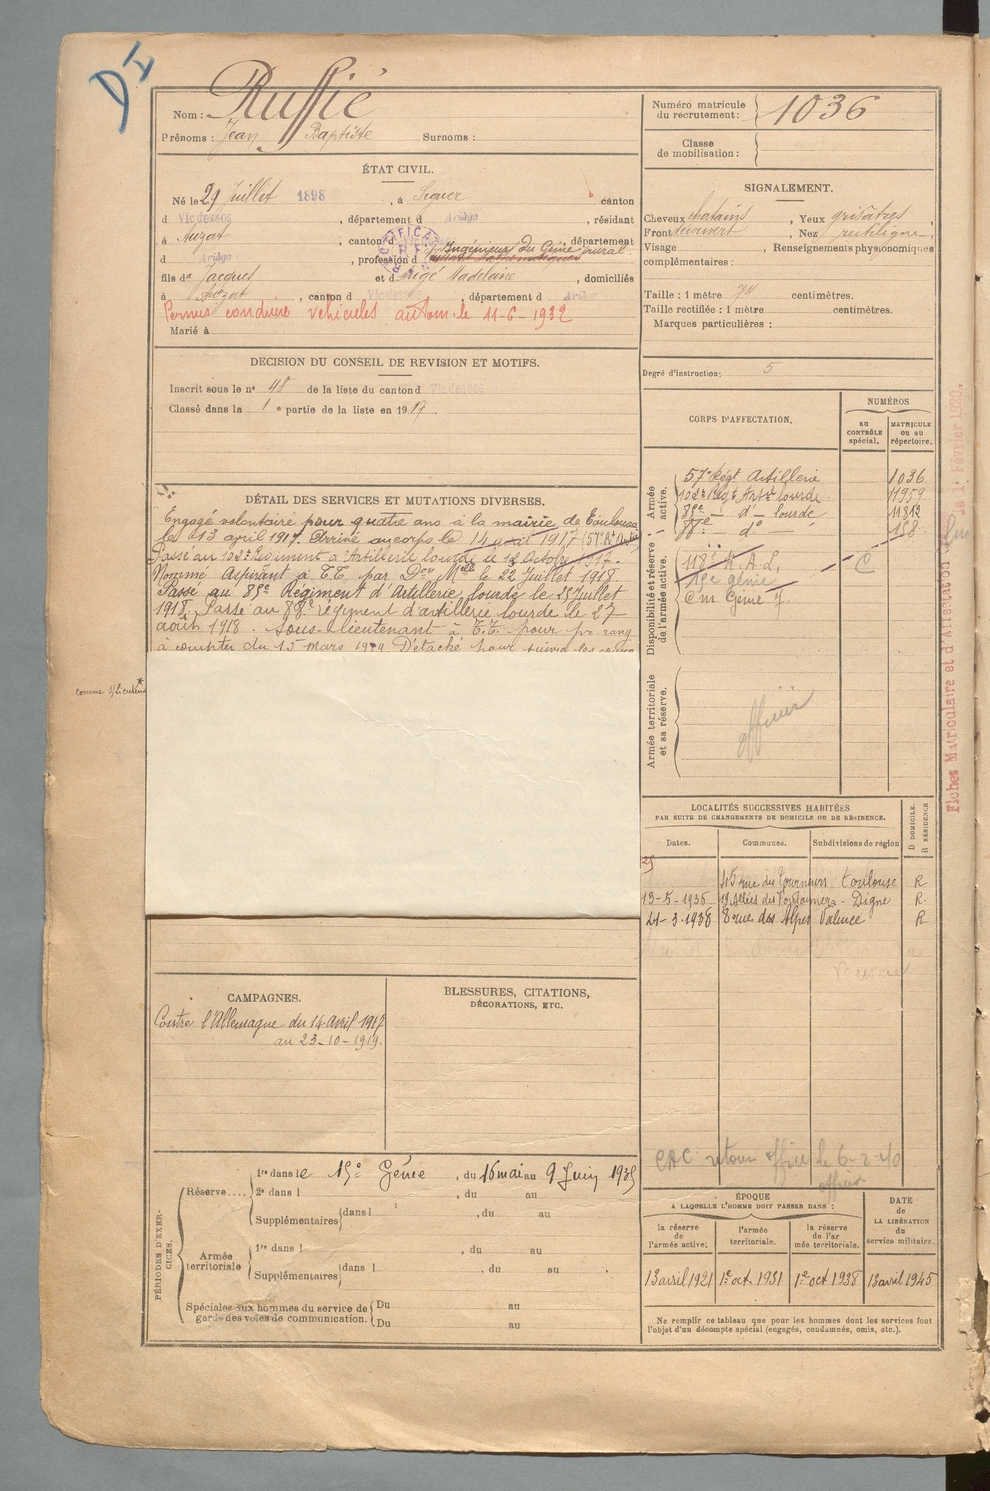 DI
Nom : Ruffié
Prénoms : Jean Baptiste Surnoms :
Numéro matricule du recrutement : 1036
Classe de mobilisation :
ÉTAT CIVIL.
Né le 29 Juillet 1898, à Siguer canton
d Vicdessos, département d Ariège, résidant
à Auzat, canton d , département
d Ariège, profession d Ingénieur du Génie rural
fils de Jacques et d Madeleine, domiciliés
à Auzat, canton d Vicdessos, département d Ariège
Permis conduire véhicules autom. le 11-6-1932
Marié à
SIGNALEMENT.
Cheveux chatains, Yeux grisâtres,
Front découvert, Nez rectiligne,
Visage , Renseignements physionomiques
complémentaires :
Taille : 1 mètre 74 centimètres.
Taille rectifiée : 1 mètre centimètres.
Marques particulières :
Degré d'instruction: 5
DECISION DU CONSEIL DE REVISION ET MOTIFS.
Inscrit sous le n° 48 de la liste du canton d Vicdessos
Classé dans la 1e partie de la liste en 1917.
CORPS D'AFFECTATION.
NUMÉROS
AU CONTRÔLE spécial.
MATRICULE OU AU répertoire.
Armée active.
57e Régt Artillerie 1036
102e Régt Artie lourde 11959
85e — d° — lourde 11812
88e — d° 158
Disponibilité et réserve de l'armée active.
118e R.A.L. C
19e génie
Cm Génie 7
Armée territoriale et sa réserve.
officier
DÉTAIL DES SERVICES ET MUTATIONS DIVERSES.
Engagé volontaire pour quatre ans à la mairie de Toulouse
le 13 avril 1917. Arrivé au corps le 14 août 1917 (57e Rt Artie)
Passé au 102e Régiment d'Artillerie lourde le 12 Octobre 1917.
Nommé Aspirant à T.T. par Don Mlle le 22 Juillet 1918.
Passé au 85e Régiment d'Artillerie lourde le 25 Juillet
1918. Passé au 88e régiment d'artillerie lourde le 27
août 1918. Sous-lieutenant à T.T. pour pr. rang
à compter du 15 mars 1919. Détaché pour suivre les cours
comme s/lieutent
Fiches Matriculaire et d'Affectation le 1r Février 1920.
LOCALITÉS SUCCESSIVES HABITÉES
PAR SUITE DE CHANGEMENTS DE DOMICILE OU DE RÉSIDENCE.
Dates. Communes. Subdivisions de région D DOMICILE. R RÉSIDENCE
25
45 rue des Tourneurs Toulouse R
13-5-1936 Allées des Digne R.
21-3-1938 8 rue des Alpes Valence R
CAMPAGNES.
Contre l'Allemagne du 14 avril 1917
au 23-10-1919.
BLESSURES, CITATIONS,
DÉCORATIONS, ETC.
CAC retour office le 6-2-40
officier
PÉRIODES D'EXERCICES.
Réserve....
1re dans le 19e Génie, du 16 mai au 9 Juin 1935
2e dans l , du au
Supplémentaires dans l , du au
Armée territoriale
1re dans l , du au
Supplémentaires dans l , du au
Spéciales aux hommes du service de garde des voies de communication.
Du au
Du au
ÉPOQUE
A LAQUELLE L'HOMME DOIT PASSER DANS :
la réserve de l'armée active.
l'armée territoriale.
la réserve de l'armée territoriale.
DATE de LA LIBÉRATION du service militaire.
13 avril 1921 1er oct 1931 1er oct 1938 13 avril 1945
Ne remplir ce tableau que pour les hommes dont les services font
l'objet d'un décompte spécial (engagés, condamnés, omis, etc.).